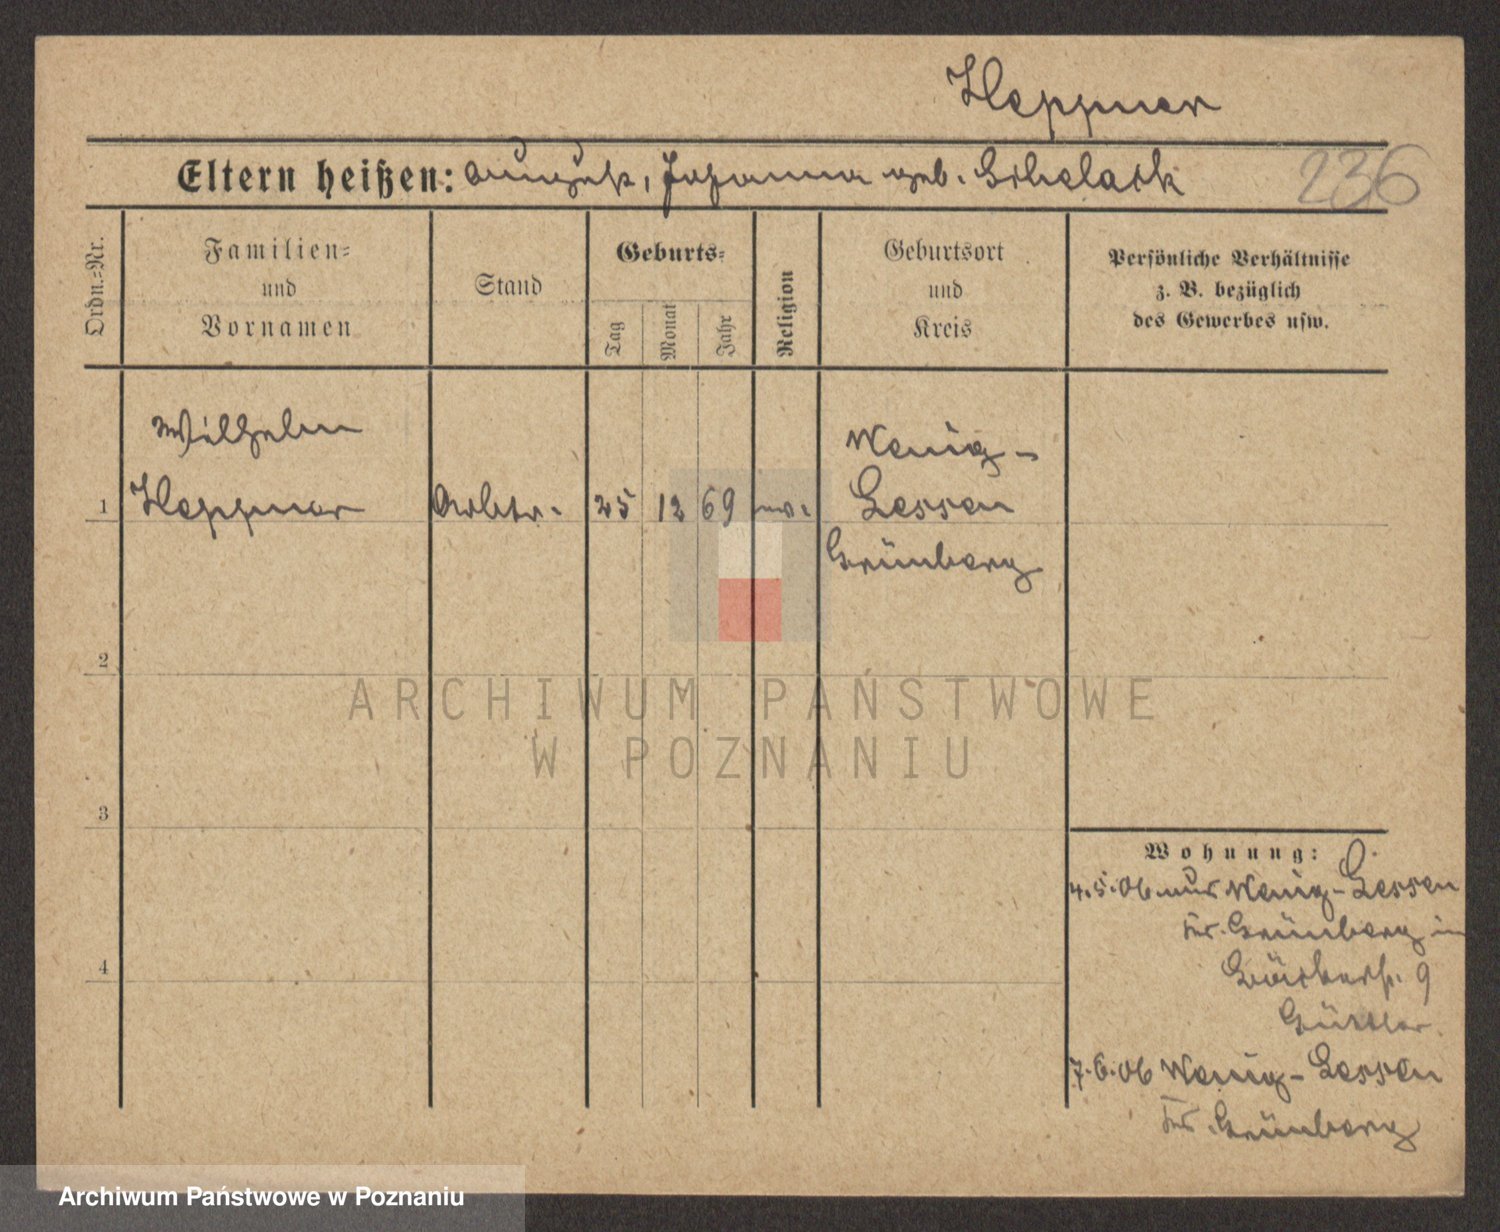 Heppner
Eltern heißen: August, Johanna geb.
236
Ordn.-Nr.
Familien-
und
Vornamen
Stand
Geburts-
Tag
Monat
Jahr
Religion
Geburtsort
und
Kreis
Persönliche Verhältnisse
z. B. bezüglich
des Gewerbes usw.
Wilhelm
1 Heppner Arbtr. 25 12 69 ev. Wenig-
Lessen
Grünberg
2
ARCHIWUM PAŃSTWOWE
W POZNANIU
3
Wohnung:
4.5.06 aus Wenig-Lessen
Kr. Grünberg in
9
4
7.6.06 Wenig-Lessen
Kr. Grünberg
Archiwum Państwowe w Poznaniu